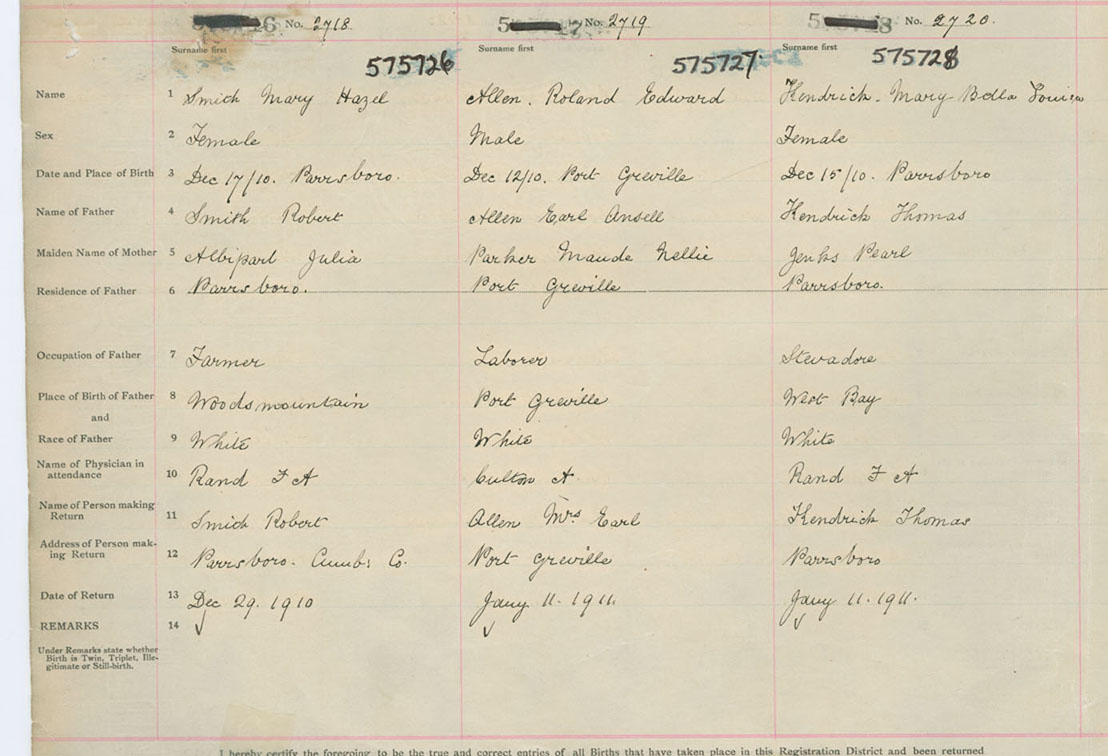 No. 2718 No. 2719 No. 2720.
Surname first Surname first Surname first
575726 575727 575728
Name 1 Smith Mary Hazel Allen. Roland Edward Kendrick. Mary Bella Louisa
Sex 2 Female Male Female
Date and Place of Birth 3 Dec 17/10. Parrsboro. Dec 12/10. Port Greville Dec 15/10. Parrsboro
Name of Father 4 Smith Robert Allen Earl Ansell Kendrick Thomas
Maiden Name of Mother 5 Julia Parker Maude Nellie Jenks Pearl
Residence of Father 6 Parrsboro. Port Greville Parrsboro.
Occupation of Father 7 Farmer Laborer Stevadore
Place of Birth of Father 8 Woodsmountain Port Greville West Bay
and
Race of Father 9 White White White
Name of Physician in
attendance 10 Rand F A A Rand F A
Name of Person making
Return 11 Smith Robert Allen Mrs Earl Kendrick Thomas
Address of Person mak-
ing Return 12 Parrsboro. Cumb: Co. Port Greville Parrsboro
Date of Return 13 Dec 29. 1910 Jany 11. 1911. Jany 11. 1911.
REMARKS 14
Under Remarks state whether
Birth is Twin, Triplet, Ille-
gitimate or Still-birth.
I hereby certify the foregoing to be the true and correct entries of all Births that have taken place in this Registration District and been returned